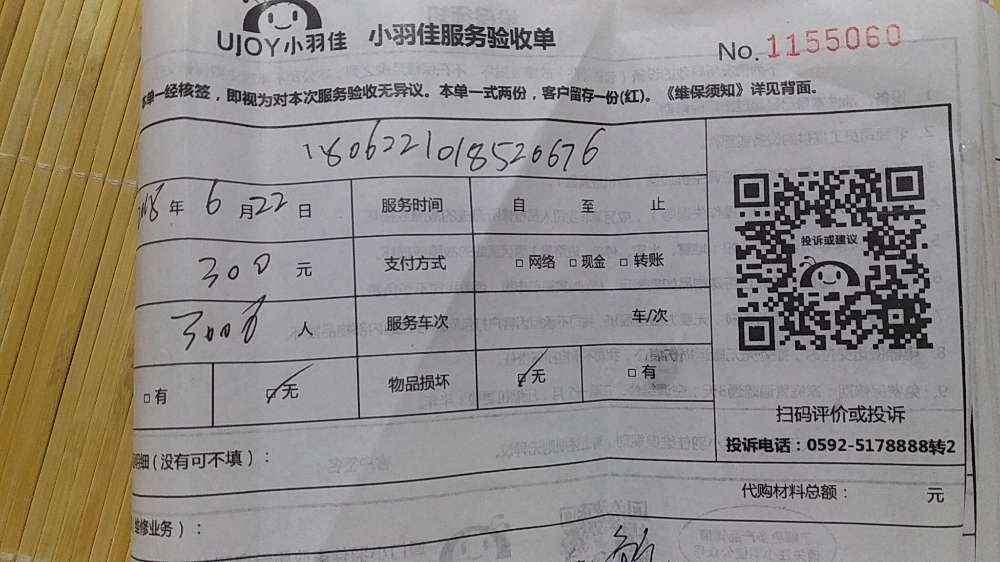 UJOY小羽佳 小羽佳服务验收单 No. 1155060
本单一经核签，即视为对本次服务验收无异议。本单一式两份，客户留存一份(红)。《维保须知》详见背面。
1806221018520676
2018年 6月22日 服务时间 自 至 止
投诉或建议
300 元 支付方式 □网络 □现金 □转账
人 服务车次 车/次
□有 □无 物品损坏 □无 □有
扫码评价或投诉
明细(没有可不填)：
投诉电话：0592-5178888转2
代购材料总额： 元
维修业务)：